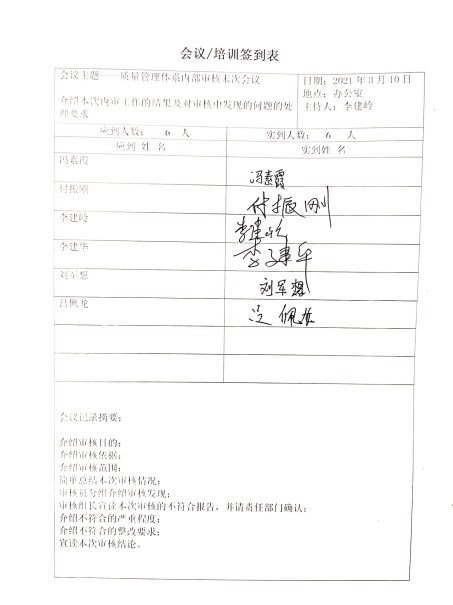 会议/培训签到表
会议主题----质量管理体系内部审核末次会议
介绍本次内审工作的结果及对审核中发现的问题的处
理要求
日期：2021年3月10日
地点：办公室
主持人：李建岭
应到人数： 6 人
实到人数： 6 人
应到姓名
实到姓名
冯素霞
冯素霞
付振刚
付振刚
李建岭
李建岭
李建华
李建华
刘军想
刘军想
吕佩龙
吕佩龙
会议记录摘要：
介绍审核目的；
介绍审核依据；
介绍审核范围；
简单总结本次审核情况；
审核员分组介绍审核发现；
审核组长宣读本次审核的不符合报告，并请责任部门确认；
介绍不符合的严重程度；
介绍不符合的整改要求；
宣读本次审核结论。